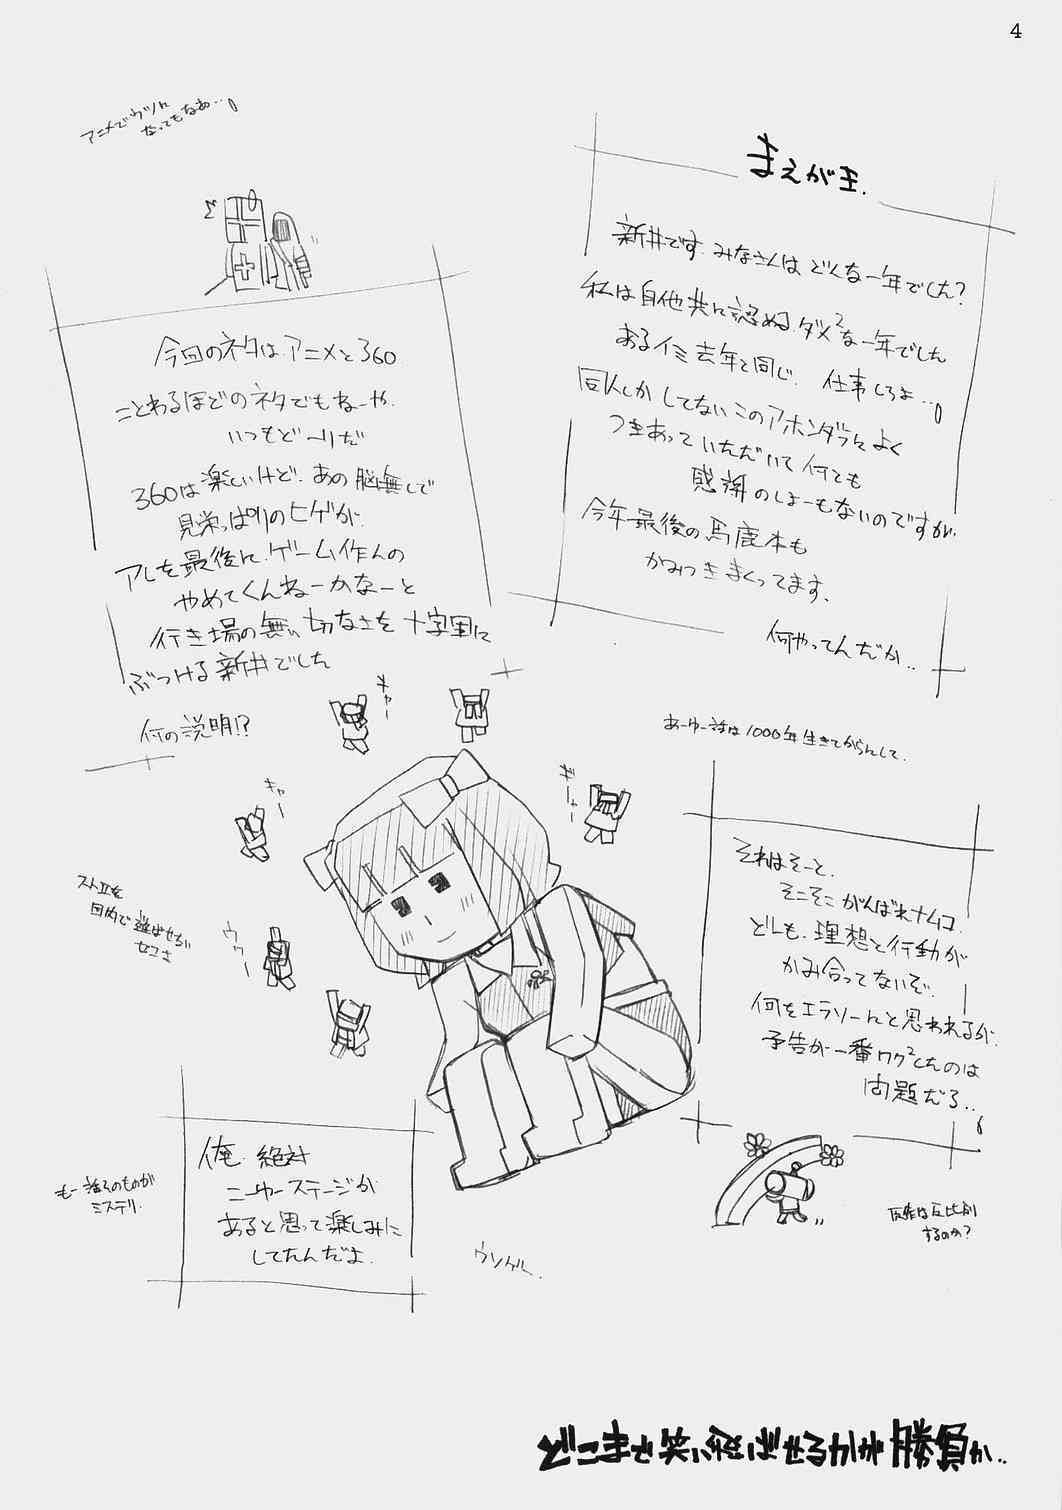 4
まえがき.
新井です.みなさんは どんな一年でした?
私は自他共に認めるダメ²な一年でした
あるイミ去年と同じ. 仕事しろよ…。
同人しか してないこのアホンダラによく
つきあって いただいて 何とも
感謝のしよーもないのですが.
今年最後の馬鹿本も
かみつきまくってます.
何やってんだか..
アニメでウツに
なってもなあ…。
今回のネタはアニメと360
ことわるほどのネタでもねーや.
いつもどーりだ
360は楽しいけど.あの脳無しで
見栄っぱりのヒゲが.
アレを最後に.ゲーム作んの
やめてくんねーかなーと
行き場の無い切なさを十字軍に
ぶつける新井でした
何の説明!?
キャー
キャー
ギャー
ウワー
あーゆー話は1000年生きてからんして.
それはそーと.
そこそこがんばれナムコ.
どーも.理想と行動が
かみ合ってないぞ.
何をエラソーにと思われるが.
予告が一番ワク²したのは
問題だろ...
反響は反比例
するのか?
ストIIを
国内で遊ばせない
セコさ
俺.絶対
ニューステージが
あると思って楽しみに
してたんだよ.
もー誰そのものが
ミステリ.
ウソゲー.
どこまで笑い飛ばせるかが勝負か..